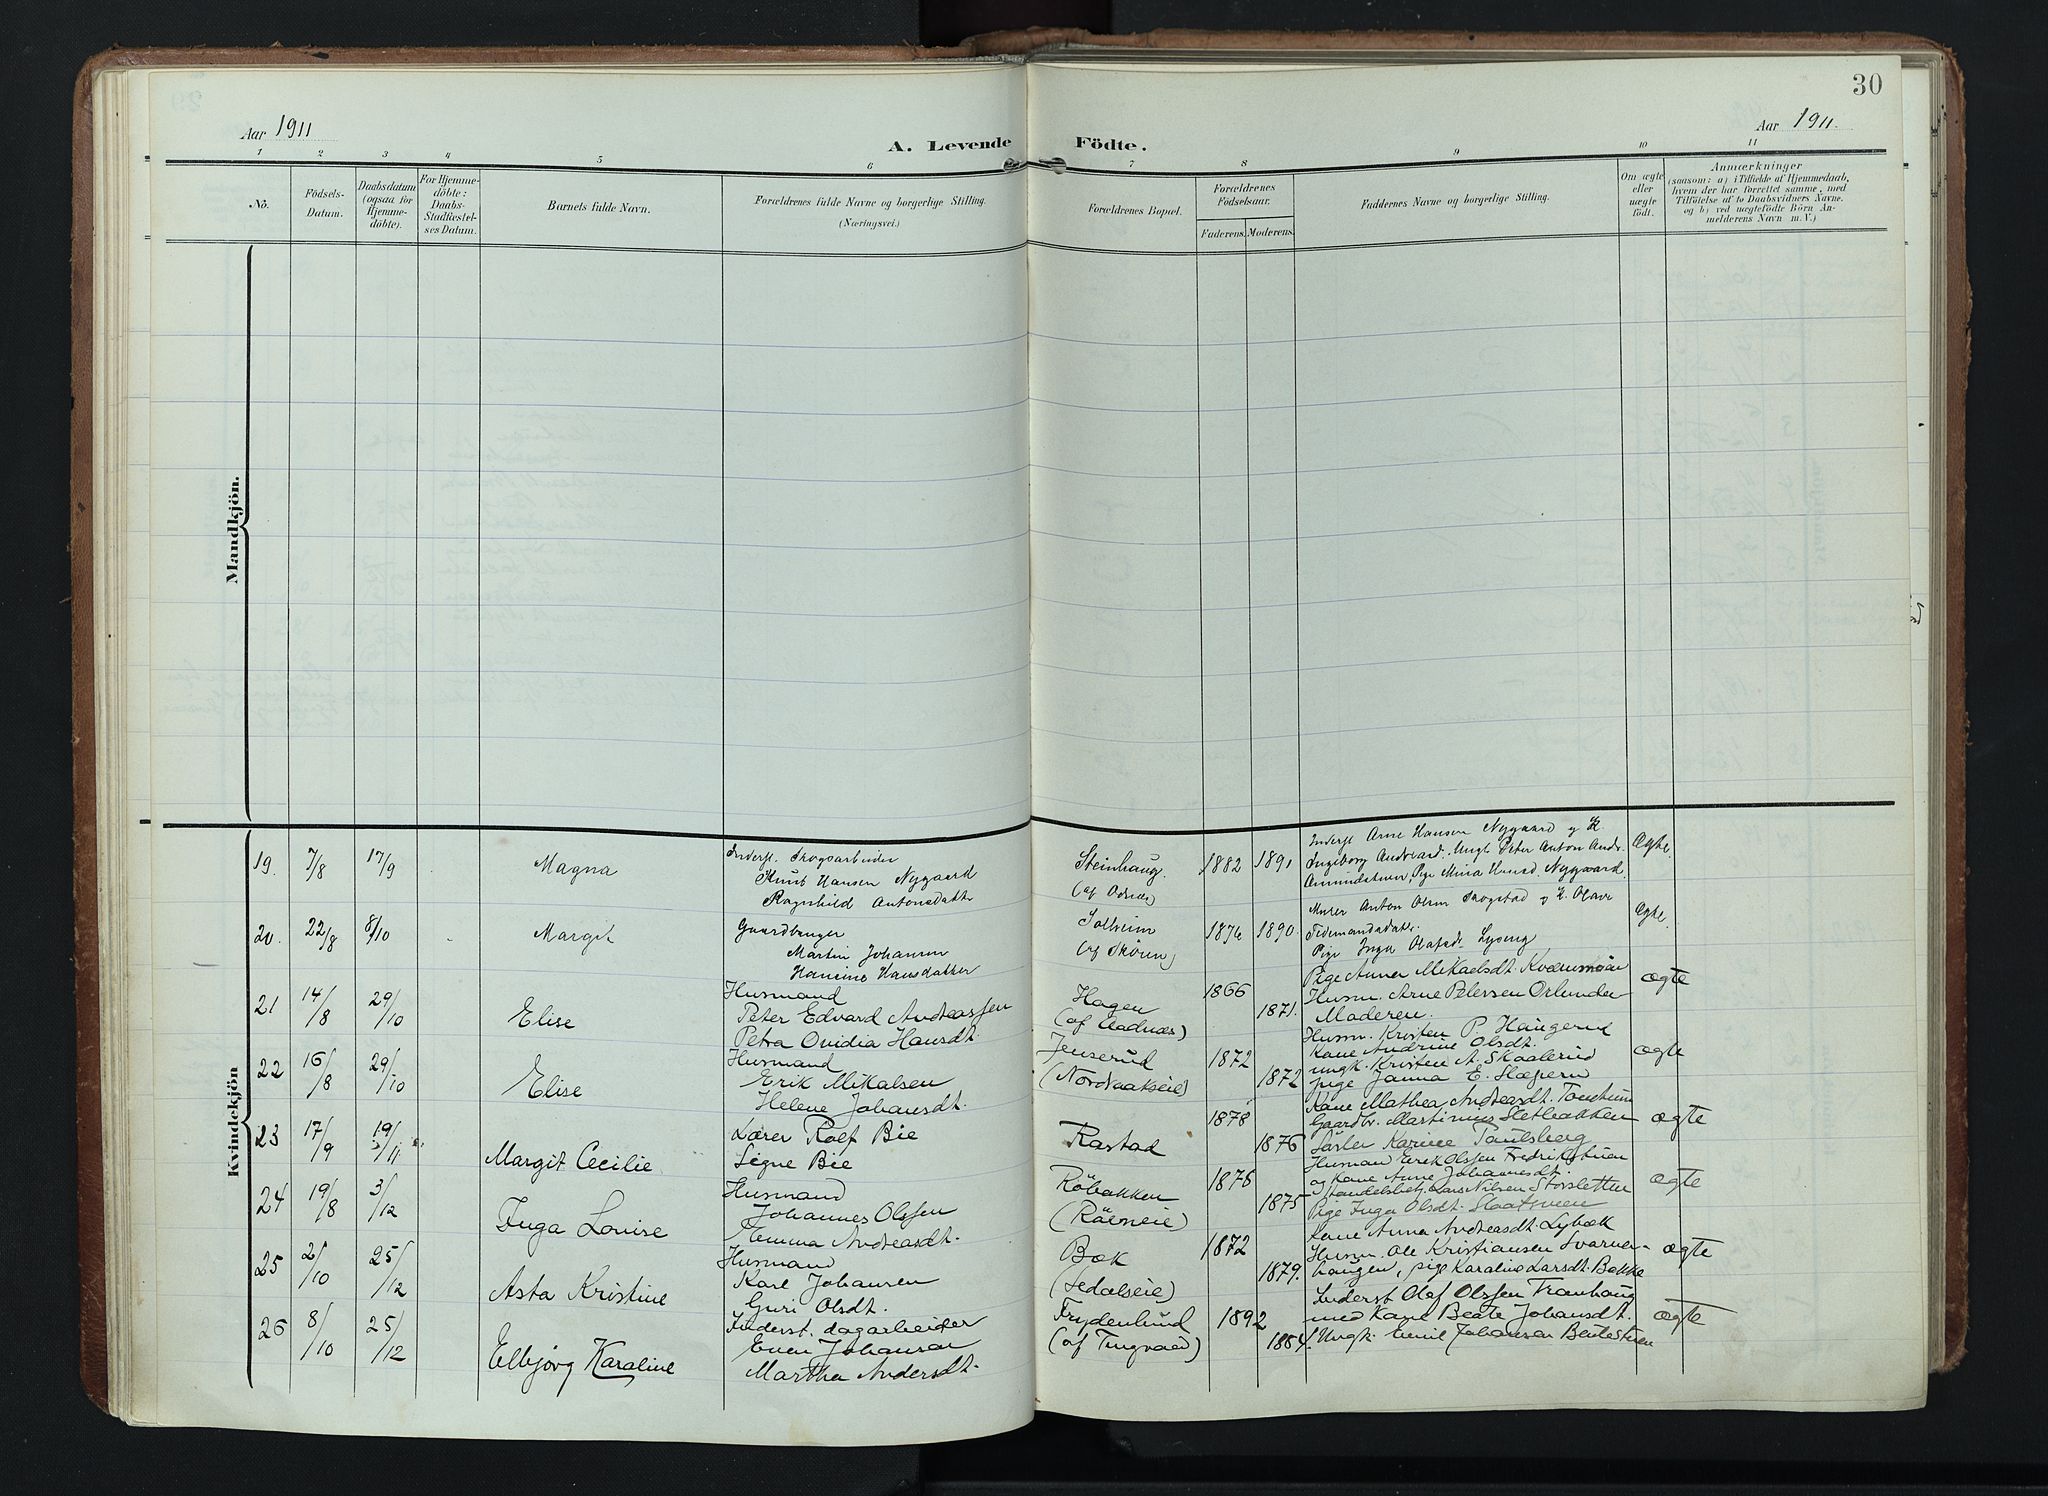 30
Aar 1911
A. Levende Födte.
Aar 1911.
1 2 3 4 5 6 7 8 9 10 11
Nö.
Födsels-Datum.
Daabsdatum (ogsaa for Hjemmedöbte).
For Hjemmedöbte: Daabs-Stadfæstelses Datum.
Barnets fulde Navn.
Forældrenes fulde Navne og borgerlige Stilling.
(Næringsvei.)
Forældrenes Bopæl.
Forældrenes Födselsaar.
Faderens. Moderens.
Faddernes Navne og borgerlige Stilling.
Om ægte eller uægte födt.
Anmærkninger
(saasom: a) i Tilfælde af Hjemmedaab,
hvem der har forrettet samme, med
Tilföielse af to Daabsvidners Navne.
og b) ved uægtefödte Börn An-
melderens Navn m. V.)
Mandkjön.
Kvindekjön
19. 7/8 17/9 Magna
Inderst. Skogsarbeider
Knut Hansen Nygaard
Ragnhild Antonsdatter
Steinhaug.
(af Odnæs)
1882 1891
Inderst Arne Hansen Nygaard og K.
Ingeborg Andrsd., Ungk Peter Anton Andr.
Pige Mina Hansd Nygaard.
Ægte.
20. 22/8 8/10 Margit
Gaardbruger
Martin Johansen
Hansine Hansdatter
Solheim
1874 1890.
Murer Anton Olsen Skogstad og K. Olave
Tidemandsdatr.
Pige Inga Olafsdr Lyseng
Ægte.
21 14/8 29/10 Elise
Husmand
Peter Edvard Andreassen
Petra Ovidia Hansdt.
Hagen
(af Aadnæs)
1866 1871.
Pige Anna Mikaelsdt. Kværnmoen
Husm. Arne Petersen Orlunder
Moderen.
ægte
22 16/8 29/10 Elise
Husmand
Erik Mikalsen
Helene Johansdt.
Jenserud
(Nordraakseie)
1872 1872
Husm. Kristen P. Haugerud
Kane Andrine Olsdt.
ungk. Kristen A. Skaalerud
pige Janna E.
ægte
23 17/9 19/11 Margit Cecilie
Lærer Rolf Bie
Signe Bie
Rastad
1878 1876
Kane Mathea Andreasdt.
Gaardbr. Martinius Sletbakken
Karine Paulsberg
ægte
24 19/8 3/12 Inga Louise
Husmand
Johannes Olssen
Hemma Andreasdt.
Röbakken
1876 1875
Husmand Erik Olssen Fredrikstuen
og Kane Anne Johannesdt.
Handelsbetj. Lars Nilsen Storsletten
Pige Inga Olsdt. Slaatsveen
ægte
25 2/10 25/12 Asta Kristine
Husmand
Karl Johansen
Guri Olsdt.
Bæk
1872 1879.
Kane Anna Andreasdt. Lybæk
Husm. Ole Kristiansen Svarver-
haugen, pige Karoline Larsdt. Bakke
ægte
26 8/10 25/12 Elbjörg Karaline
Inderst. dagarbeider
Even Johansen
Martha Andersdt.
Frydenlund
(af Tingvold)
1892 1884.
Inderst Olaf Olssen Tranhaug
med Kane Beate Johansdt.
Ungk. Emil Johansen
ægte